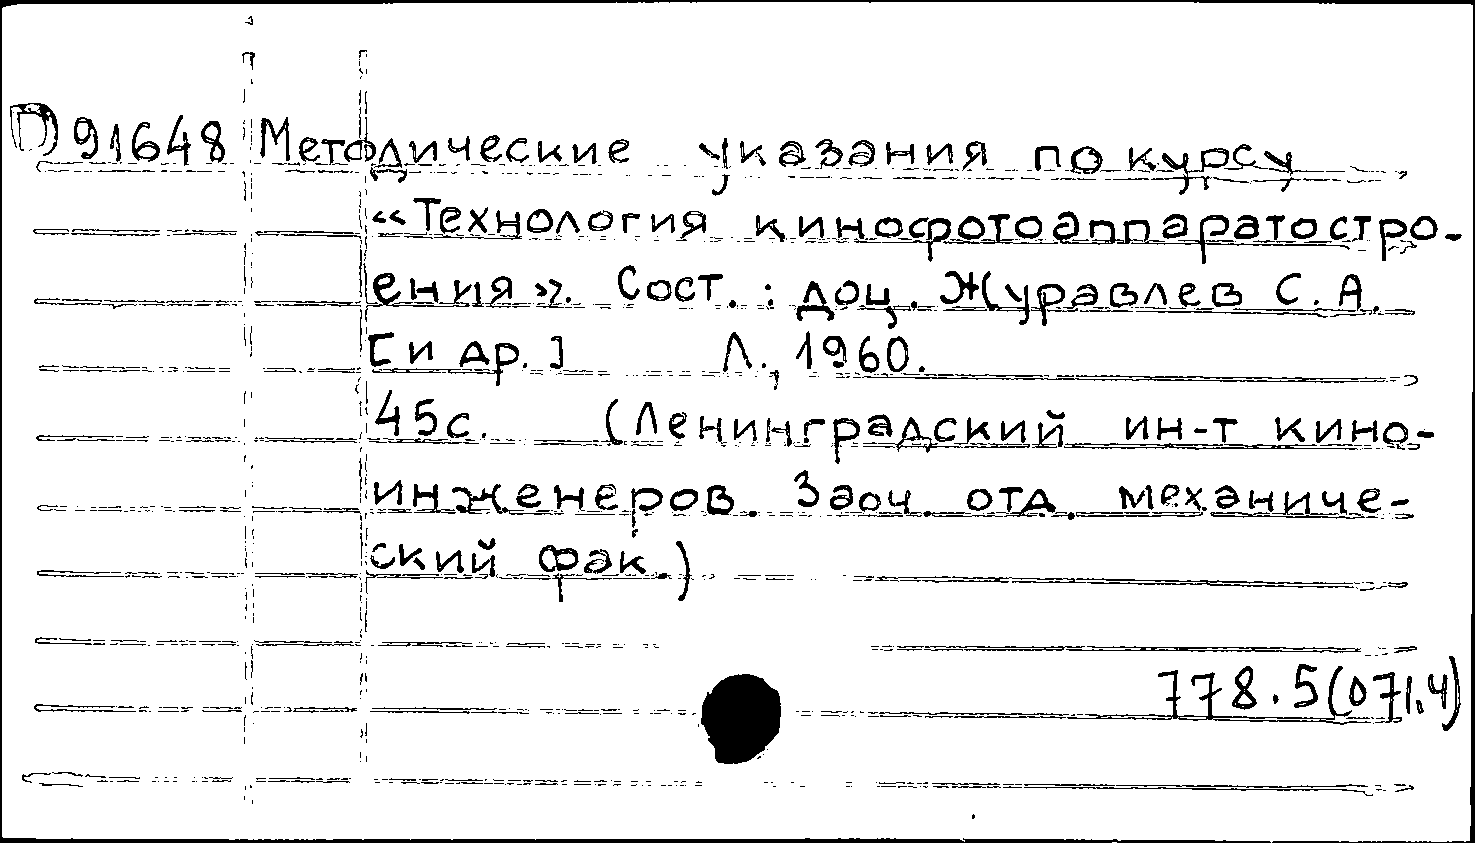 D91648 Методические указания по курсу
«Технология кинофотоаппаратостро-
ения». Сост.: доц. Журавлев С.А.
[и др.] Л., 1960.
45с. (Ленинградский ин-т кино-
инженеров. Заоч. отд. механиче-
ский фак.)
778.5(071.4)